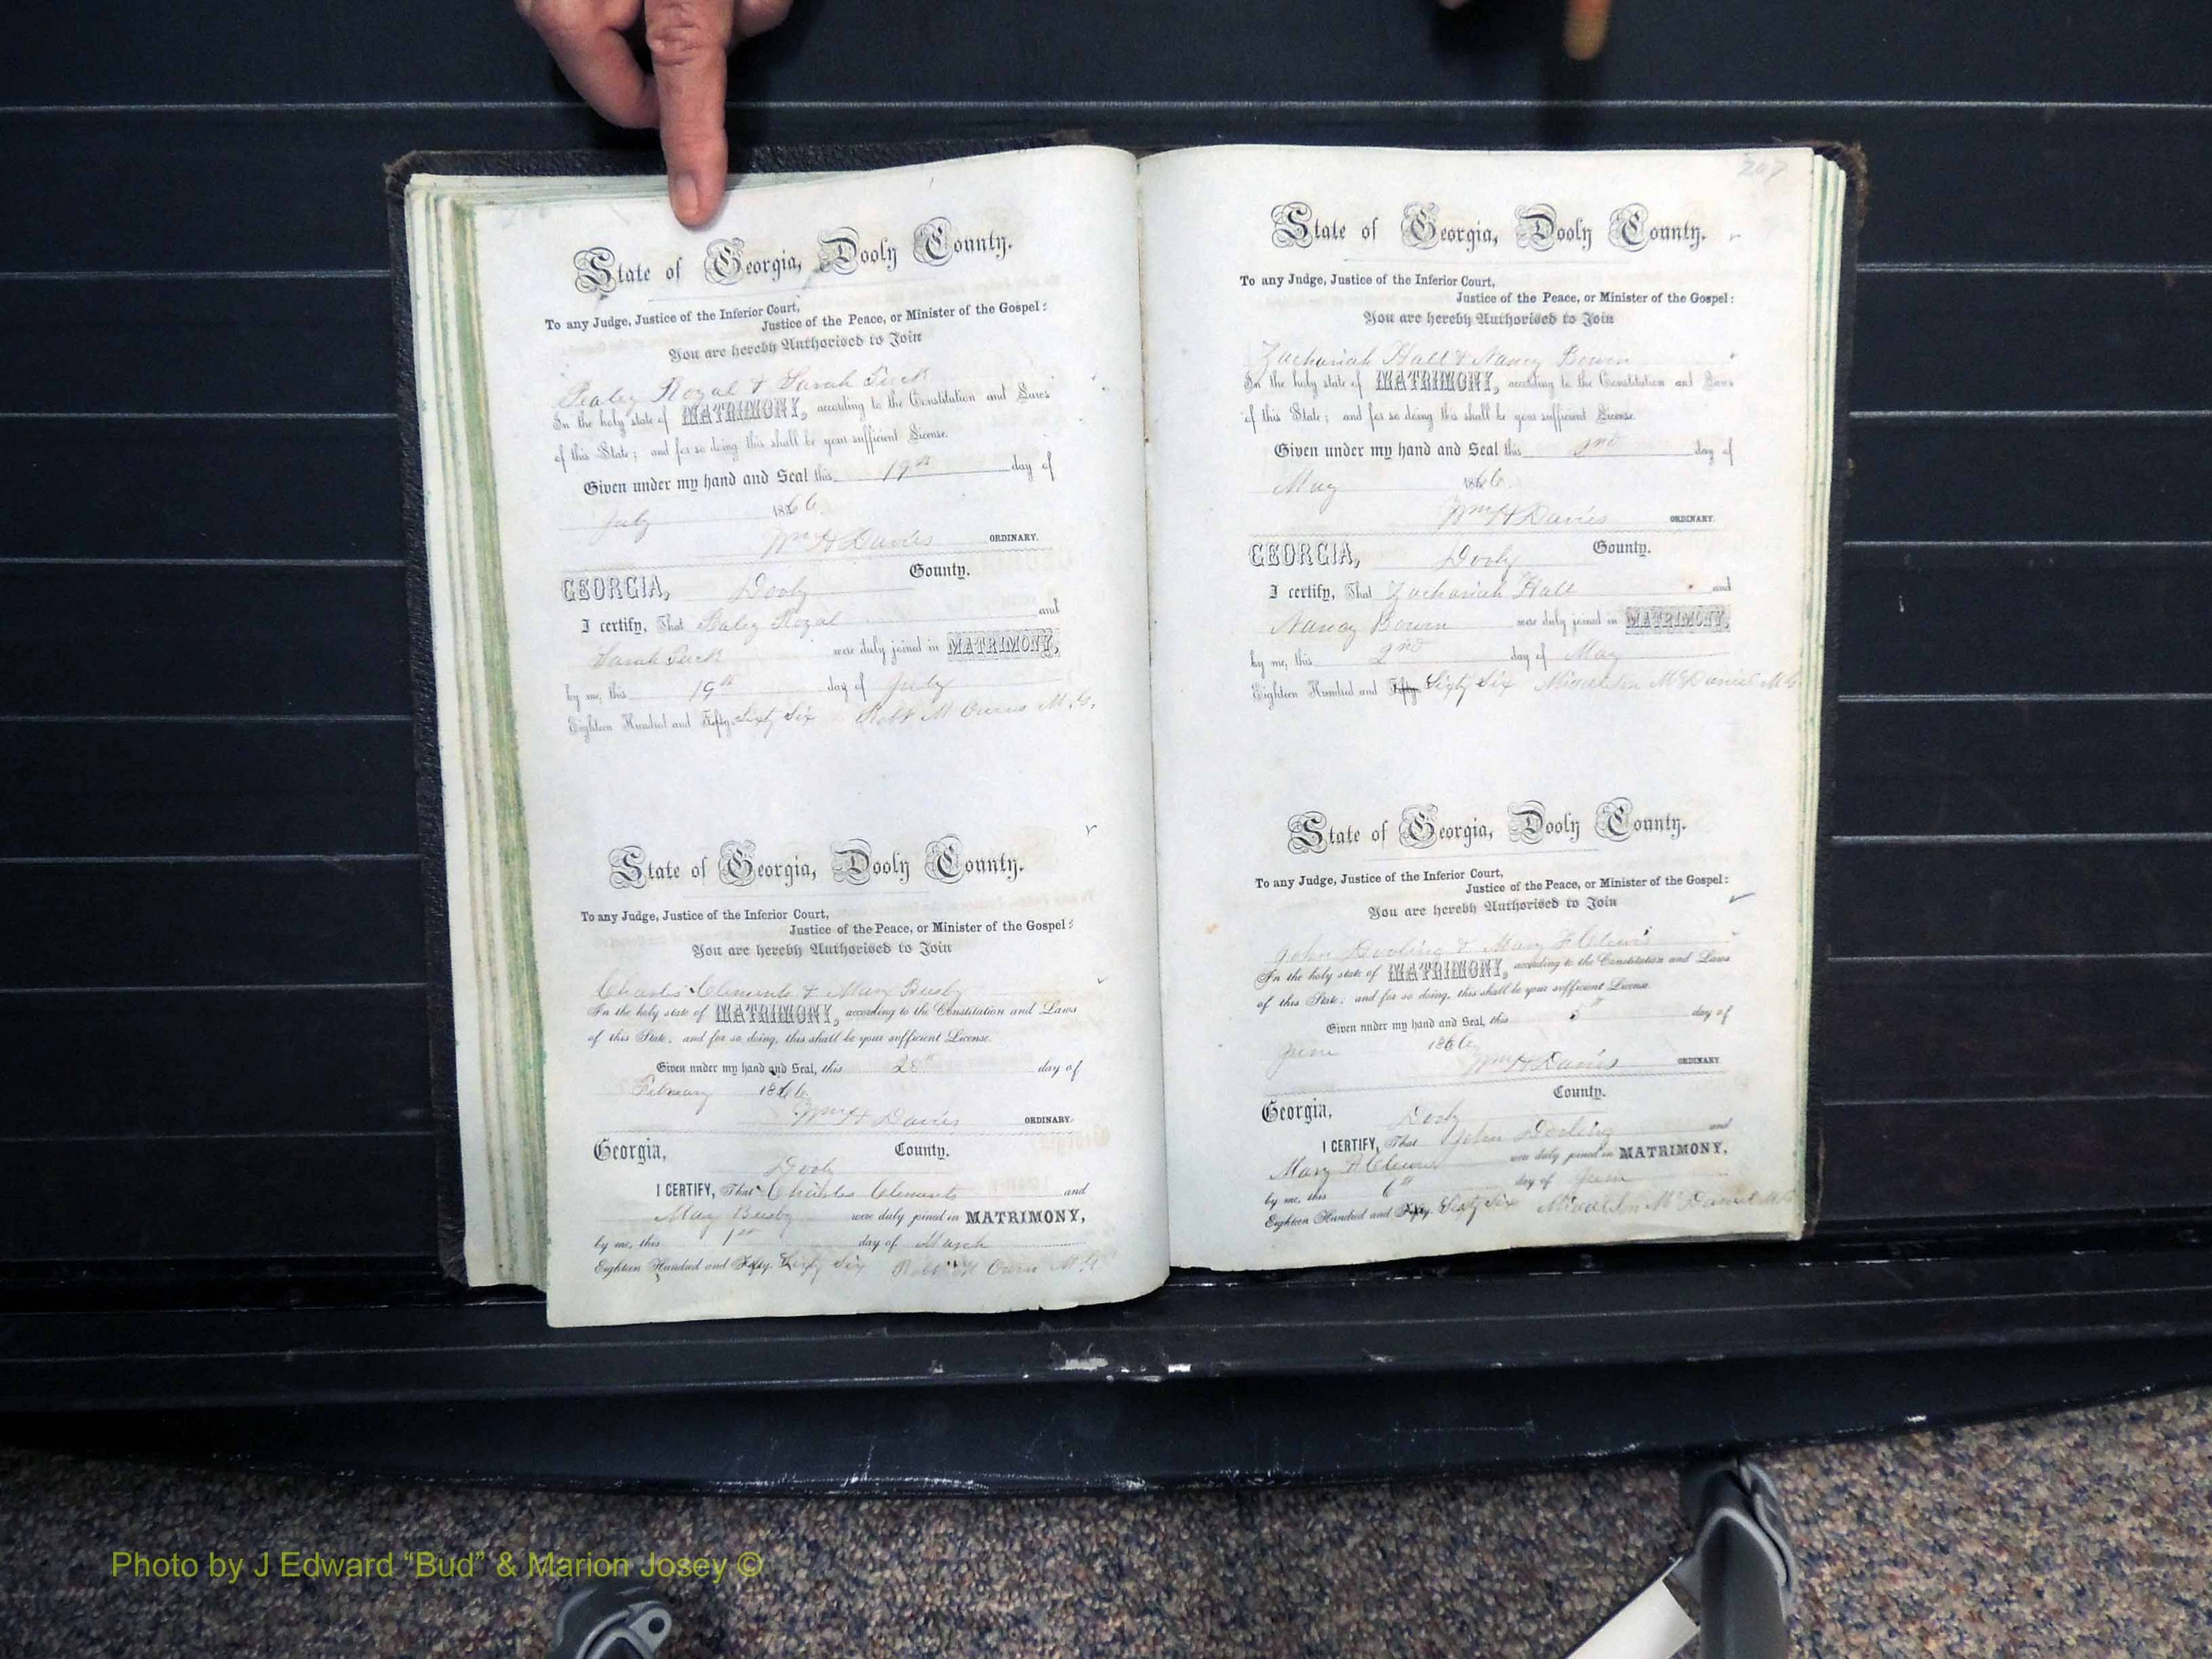 State of Georgia, Dooly County.
To any Judge, Justice of the Inferior Court,
Justice of the Peace, or Minister of the Gospel:
You are hereby Authorised to Join
Royal & Sarah Tuck
In the holy state of MATRIMONY, according to the Constitution and Laws
of this State; and for so doing this shall be your sufficient License.
Given under my hand and Seal this 19th day of
July 1866.
Wm H Davies ORDINARY.
GEORGIA, Dooly County.
I certify, That Royal and
Sarah Tuck were duly joined in MATRIMONY,
by me, this 19th day of July
Eighteen Hundred and Fifty Sixty Six Robt M Owens M.G.
State of Georgia, Dooly County.
To any Judge, Justice of the Inferior Court,
Justice of the Peace, or Minister of the Gospel:
You are hereby Authorised to Join
Charles Clements & Mary Busby
In the holy state of MATRIMONY, according to the Constitution and Laws
of this State; and for so doing, this shall be your sufficient License.
Given under my hand and Seal, this 28th day of
February 1866
Wm H Davies ORDINARY.
Georgia, Dooly County.
I CERTIFY, That Charles Clements and
Mary Busby were duly joined in MATRIMONY,
by me, this 1st day of March
Eighteen Hundred and Fifty. Sixty Six Robt M Owen M.G
207
State of Georgia, Dooly County.
To any Judge, Justice of the Inferior Court,
Justice of the Peace, or Minister of the Gospel:
You are hereby Authorised to Join
Zachariah Hall & Nancy Bowen
In the holy state of MATRIMONY, according to the Constitution and Laws
of this State; and for so doing this shall be your sufficient License.
Given under my hand and Seal this 2nd day of
May 1866.
Wm H Davies ORDINARY.
GEORGIA, Dooly County.
I certify, That Zachariah Hall and
Nancy Bowen were duly joined in MATRIMONY,
by me, this 2nd day of May
Eighteen Hundred and Fifty Sixty Six Middleton McDaniel M G
State of Georgia, Dooly County.
To any Judge, Justice of the Inferior Court,
Justice of the Peace, or Minister of the Gospel:
You are hereby Authorised to Join
John & Mary
In the holy state of MATRIMONY, according to the Constitution and Laws
of this State; and for so doing, this shall be your sufficient License.
Given under my hand and Seal, this 5th day of
June 1866
Wm H Davies ORDINARY
Georgia, Dooly County.
I CERTIFY, That John and
Mary were duly joined in MATRIMONY,
by me, this 6th day of June
Eighteen Hundred and Fifty. Sixty Six Middleton McDaniel M G
Photo by J Edward “Bud” & Marion Josey ©